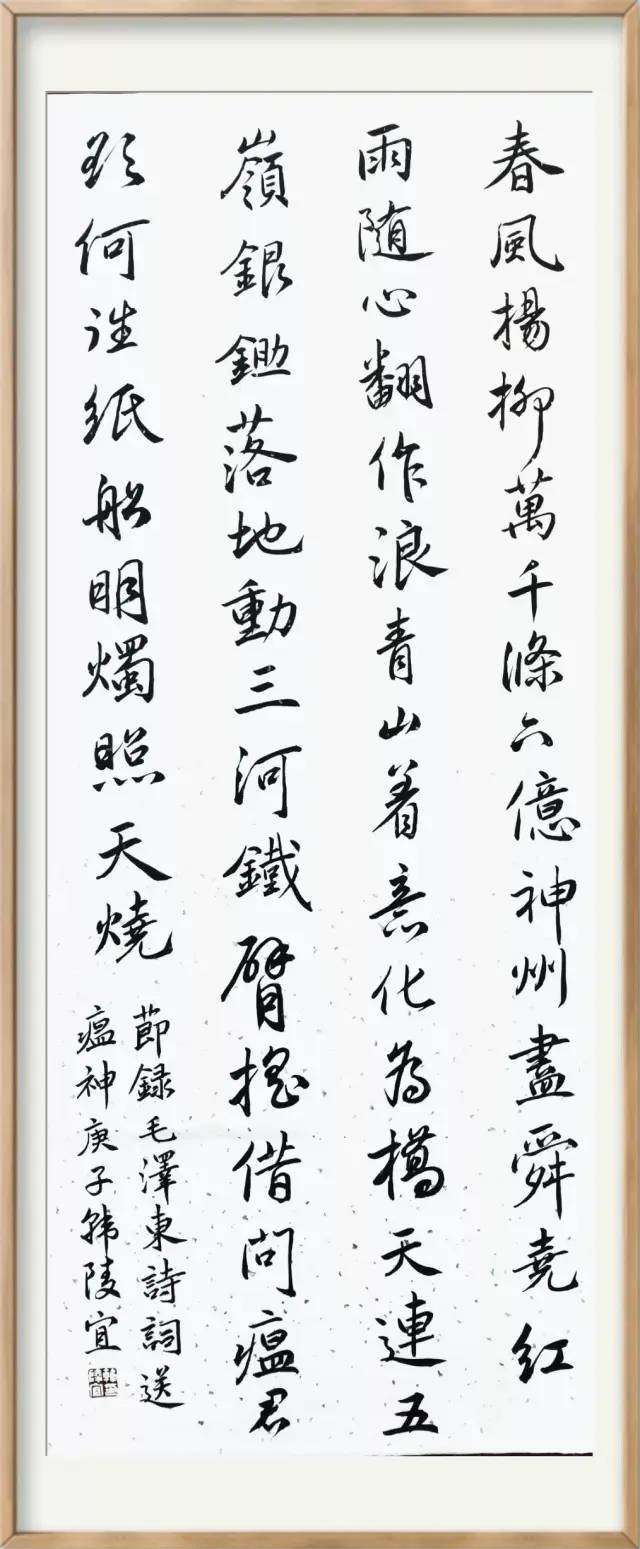 春風楊柳萬千條六億神州盡舜堯紅
雨随心翻作浪青山着意化為橋天連五
嶺銀鋤落地動三河鐵臂搖借問瘟君
欲何往紙船明燭照天燒
節録毛澤東詩詞送
瘟神庚子韓陵宜